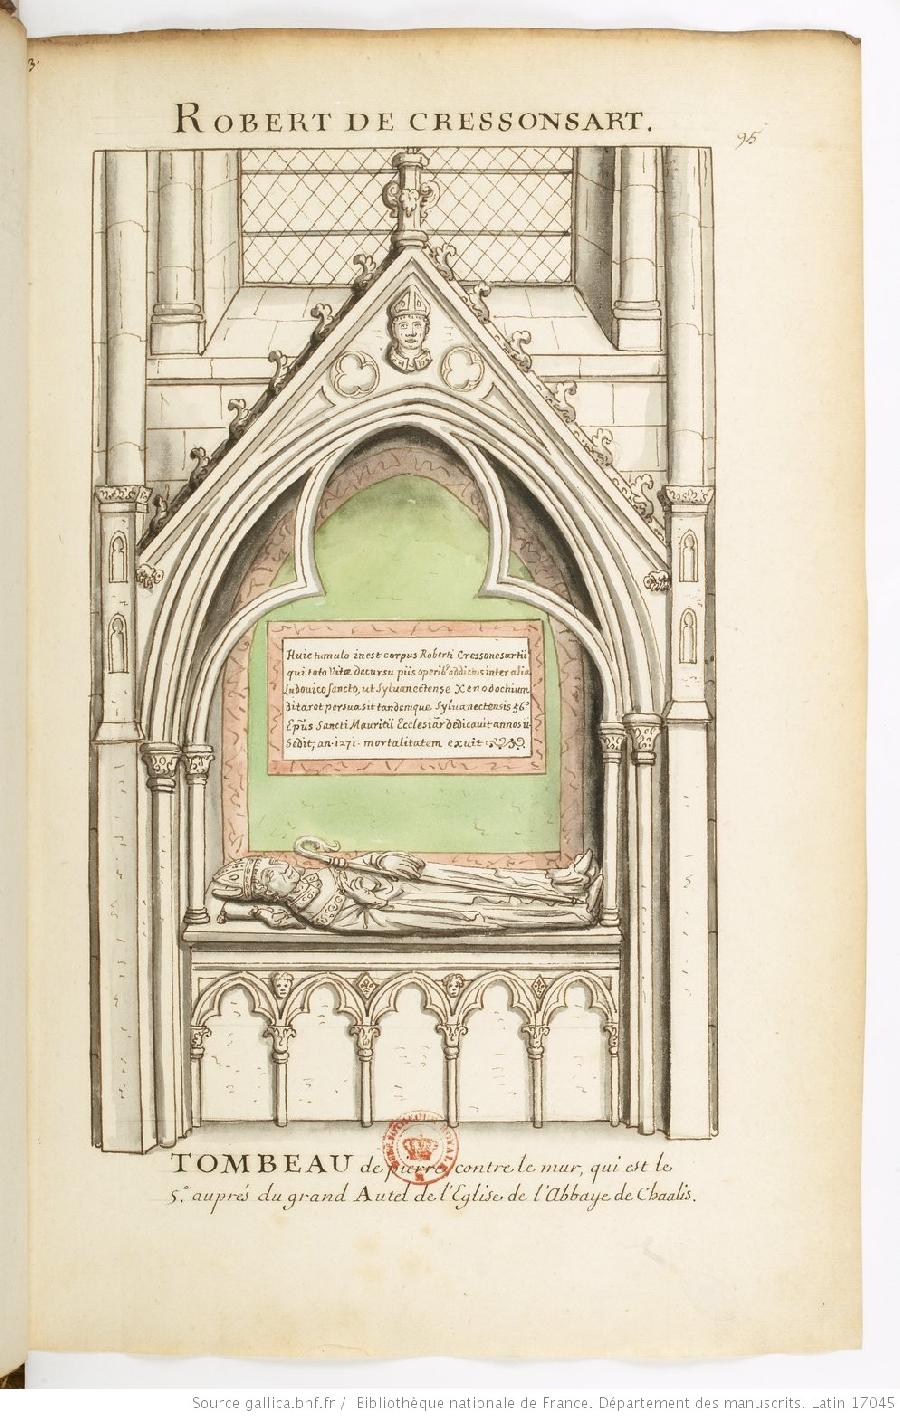 3
ROBERT DE CRESSONSART.
95
Huic tumulo inest corpus Roberti Cressonesartii
qui toto Vitæ decursu piis operib⁹ addictus inter alia
Ludovico sancto, ut Sylvanectense Xenodochium
ditarot persuasit tandemque Sylvanectensis 56⁹
Ep̃us Sancti Mauritii Ecclesiãr dedicavit annos
Sedit, an. 1271. mortalitatem exuit
TOMBEAU de pierre, contre le mur, qui est le
5.e auprés du grand Autel de l'Eglise de l'Abbaye de Chaalis.
Source gallica.bnf.fr / Bibliothèque nationale de France. Département des manuscrits. Latin 17045